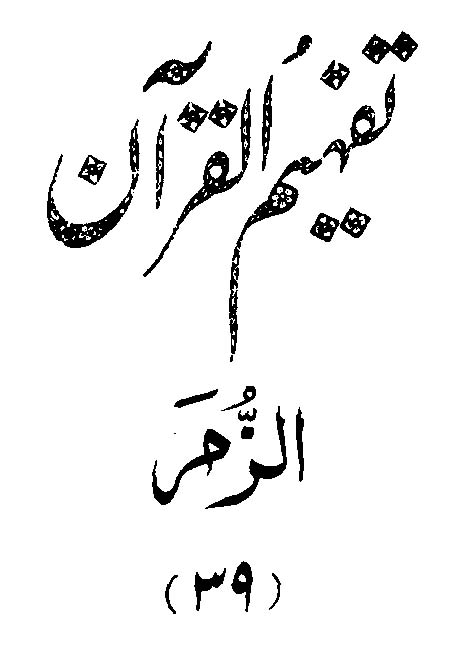 تفہیمُ القرآن
الزُّمَر
(۳۹)